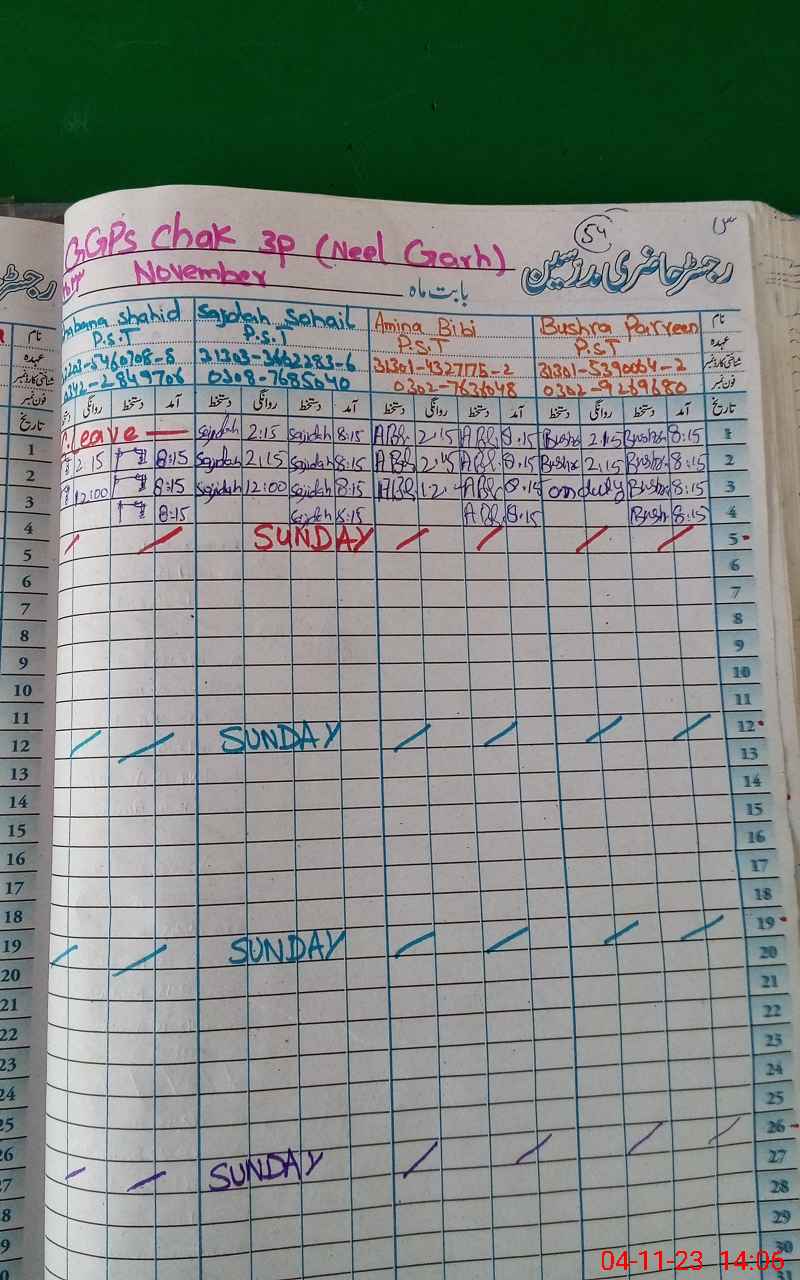 س
54
GGPs Chak 3p (Neel Garh)
رجسٹر حاضری مدرسین
November بابت ماہ
Shahid Sajdah Sohail Amina Bibi Bushra Parveen نام
P.S.T P.S.T P.S.T P.S.T عہدہ
21303-3602283-6 31301-4327175-2 31301-5390064-2 شناختی کارڈ نمبر
0342-2849706 0308-7685040 0302-7636048 0302-9269680 فون نمبر
روانگی دستخط آمد دستخط روانگی دستخط آمد دستخط روانگی دستخط آمد دستخط روانگی دستخط آمد تاریخ
1 Leave Sajdah 2:15 Sajdah 8:15 ABb 2:15 ABb 8:15 Bushra 2:15 Bushra 8:15 1
2 2:15 8:15 Sajdah 2:15 Sajdah 8:15 ABb 2:15 ABb 8:15 Bushra 2:15 Bushra 8:15 2
3 12:00 8:15 Sajdah 12:00 Sajdah 8:15 ABb ABb 8:15 on duty Bushra 8:15 3
4 8:15 Sajdah 8:15 ABb 8:15 Bush 8:15 4
5 SUNDAY 5
6 6
7 7
8 8
9 9
10 10
11 11
12 SUNDAY 12
13 13
14 14
15 15
16 16
17 17
18 18
19 SUNDAY 19
20 20
21 21
22 22
23 23
24 24
25 25
26 SUNDAY 26
27 27
28 28
29 29
30 30
31
04-11-23 14:06